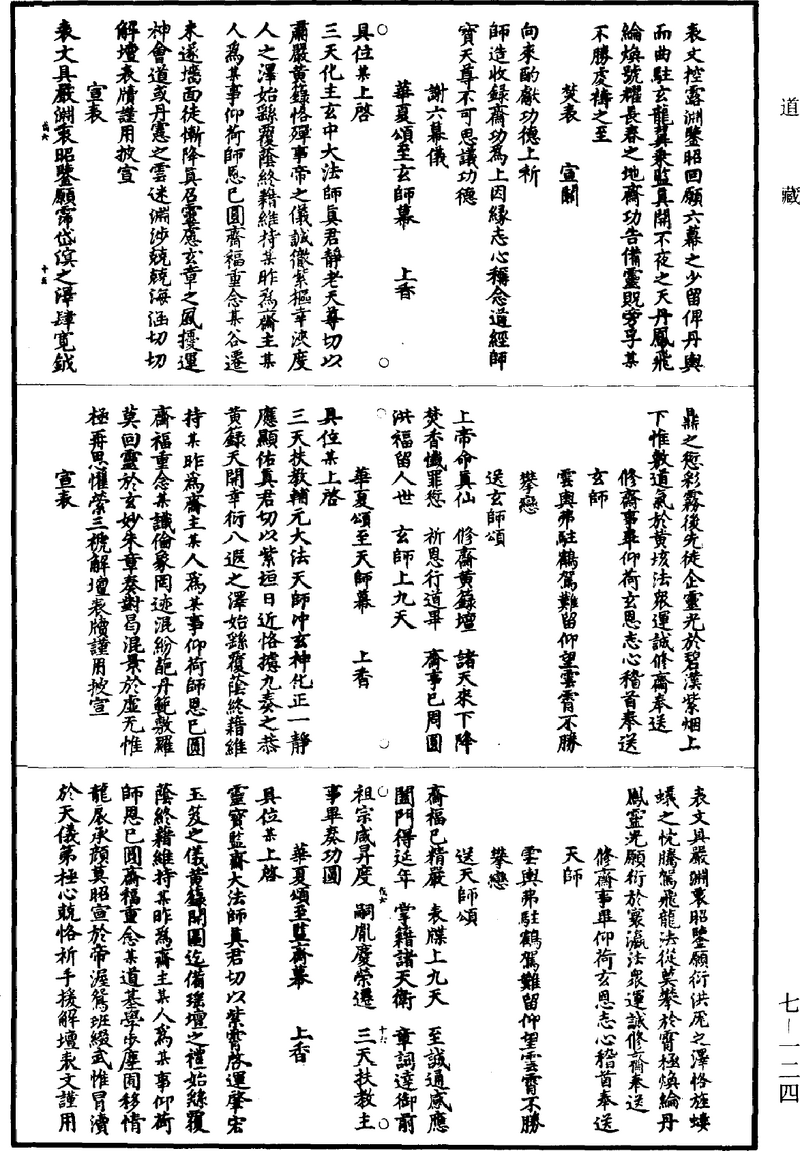 道藏
表文控露淵鑒昭回願六幕之少留俾丹輿
而曲駐玄龍翼乘監真開不夜之天丹鳳飛
綸煥號耀長春之地齋功告備靈貺旁孚某
不勝虔禱之至
焚表　宣關
向來酌獻功德上祈
師造收録齋功爲上因縁志心稱念道經師
寶天尊不可思議功德
謝六幕儀
華夏頌至玄師幕　上香
具位某上啓
三天化主玄中大法師真君靜老天尊切以
肅嚴黃籙恪殫事帝之儀誠徹紫樞幸浹度
人之澤始繇覆蔭終藉維持某昨爲齋主某
人爲某事仰荷師恩已圓齋福重念某谷遷
未遂墻面徒慚降真召靈應玄章之風擾運
神會道或丹悃之雲迷淵涉兢兢海涵切切
解壇表牘謹用披宣
宣表
表文具嚴淵衷昭鑒願霈岱溟之澤肆寬鉞
戌六
十五
鼎之愆彩霧後先徒企靈光於碧漢紫烟上
下惟敷道氣於黃垓法衆運誠修齋奉送
修齋事畢仰荷玄恩志心稽首奉送
玄師
雲輿弗駐鶴駕難留仰望雲霄不勝
攀戀
送玄師頌
上帝命真仙　修齋黃籙壇　諸天來下降
焚香懺罪愆　祈恩行道畢　齋事已周圓
洪福留人世　玄師上九天
華夏頌至天師幕　上香
具位某上啓
三天扶教輔元大法天師冲玄神化正一靜
應顯佑真君切以紫垣日近恪據九奏之恭
黃籙天開幸衍八遐之澤始繇覆蔭終藉維
持某昨爲齋主某人爲某事仰荷師恩已圓
齋福重念某識倫象罔迹混紛鉋丹範敷羅
莫回靈於玄妙朱章奏對曷混景於虛无惟
極再思懼縈三褫解壇表牘謹用披宣
宣表
表文具嚴淵衷昭鑒願衍洪厖之澤恪旌螻
蟻之忱騰駕飛龍法從莫攀於霄極煥綸丹
鳳靈光願衍於寰瀛法衆運誠修齋奉送
修齋事畢仰荷玄恩志心稽首奉送
天師
雲輿弗駐鶴駕難留仰望雲霄不勝
攀戀
送天師頌
齋福已精嚴　表牒上九天　至誠通感應
闔門得延年　掌籍諸天衛　章詞達御前
祖宗咸昇度　嗣胤慶榮遷　三天扶教主
戌六
十六
事畢奏功圓
華夏頌至監齋幕　上香
具位某上啓
靈寶監齋大法師真君切以紫霄啓運肇宏
玉笈之儀黃籙開圖迄備璨壇之禮始繇覆
蔭終藉維持某昨爲齋主某人爲某事仰荷
師恩已圓齋福重念某道基學步塵固移情
龍扆承顔莫昭宣於帝渥鴛班綴武惟冒瀆
於天儀第極心兢恪祈手援解壇表文謹用
七—一二四